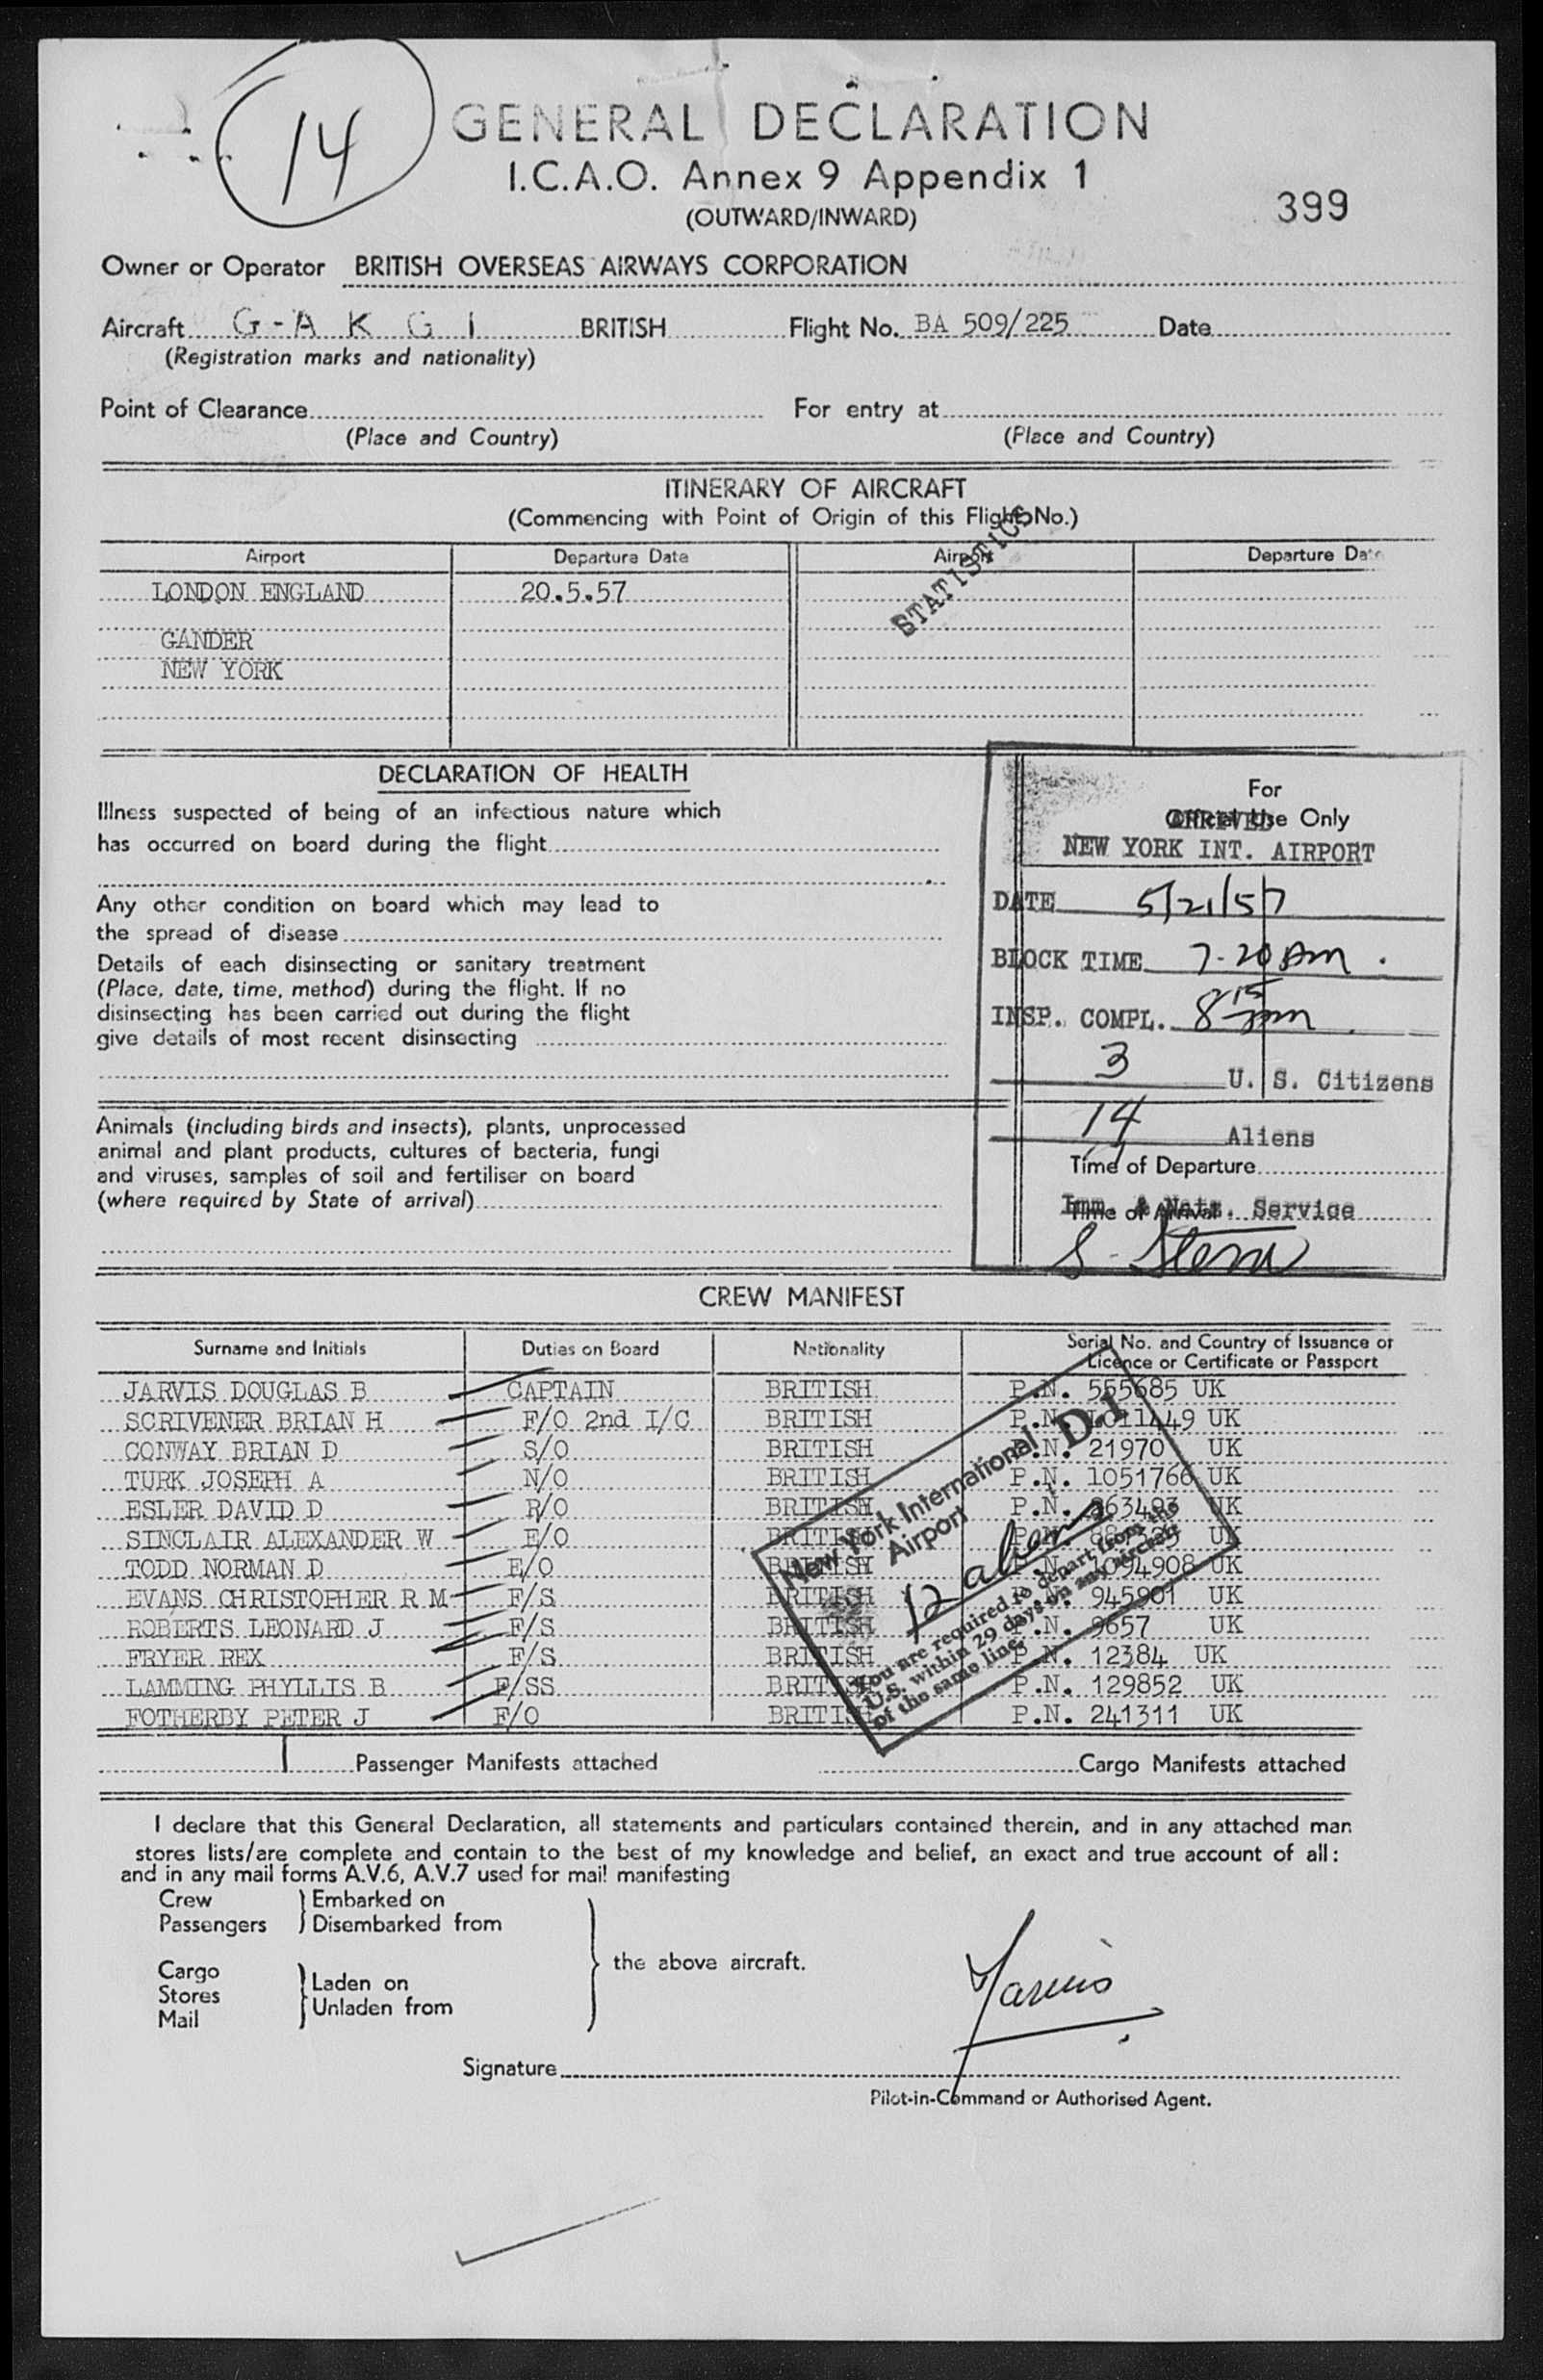 14
GENERAL DECLARATION
I.C.A.O. Annex 9 Appendix 1
(OUTWARD/INWARD)
399
Owner or Operator BRITISH OVERSEAS AIRWAYS CORPORATION
Aircraft G-A K G I BRITISH Flight No. BA 509/225 Date
(Registration marks and nationality)
Point of Clearance For entry at
(Place and Country) (Place and Country)
ITINERARY OF AIRCRAFT
(Commencing with Point of Origin of this Flight No.)
STATISTICS
Airport Departure Date Airport Departure Date
LONDON ENGLAND 20.5.57
GANDER
NEW YORK
DECLARATION OF HEALTH
Illness suspected of being of an infectious nature which
has occurred on board during the flight
Any other condition on board which may lead to
the spread of disease
Details of each disinsecting or sanitary treatment
(Place, date, time, method) during the flight. If no
disinsecting has been carried out during the flight
give details of most recent disinsecting
Animals (including birds and insects), plants, unprocessed
animal and plant products, cultures of bacteria, fungi
and viruses, samples of soil and fertiliser on board
(where required by State of arrival)
For
Official Use Only
ARRIVED
NEW YORK INT. AIRPORT
DATE 5/21/57
BLOCK TIME 7-20 AM.
INSP. COMPL. 8 15 am
3 U. S. Citizens
14 Aliens
Time of Departure
Time of Arrival
Imm. & Natz. Service
S. Stern
CREW MANIFEST
Surname and Initials Duties on Board Nationality Serial No. and Country of Issuance of
Licence or Certificate or Passport
JARVIS DOUGLAS B CAPTAIN BRITISH P.N. 555685 UK
SCRIVENER BRIAN H F/O 2nd I/C BRITISH P.N. 1011449 UK
CONWAY BRIAN D S/O BRITISH P.N. 21970 UK
TURK JOSEPH A N/O BRITISH P.N. 1051766 UK
ESLER DAVID D R/O BRITISH P.N. UK
SINCLAIR ALEXANDER W E/O BRITISH P.N. UK
TODD NORMAN D E/O BRITISH P.N. 1094908 UK
EVANS CHRISTOPHER R M F/S BRITISH P.N. 945901 UK
ROBERTS LEONARD J F/S BRITISH P.N. 9657 UK
FRYER REX F/S BRITISH P.N. 12384 UK
LAMMING PHYLLIS B F/SS BRITISH P.N. 129852 UK
FOTHERBY PETER J F/O BRITISH P.N. 241311 UK
New York International D.1
Airport
12 aliens
You are required to depart from the
U.S. within 29 days on any aircraft
of the same line.
1 Passenger Manifests attached Cargo Manifests attached
I declare that this General Declaration, all statements and particulars contained therein, and in any attached man
stores lists/are complete and contain to the best of my knowledge and belief, an exact and true account of all:
and in any mail forms A.V.6, A.V.7 used for mail manifesting
Crew Embarked on
Passengers Disembarked from
the above aircraft.
Cargo Laden on
Stores Unladen from
Mail
Jarvis
Signature
Pilot-in-Command or Authorised Agent.